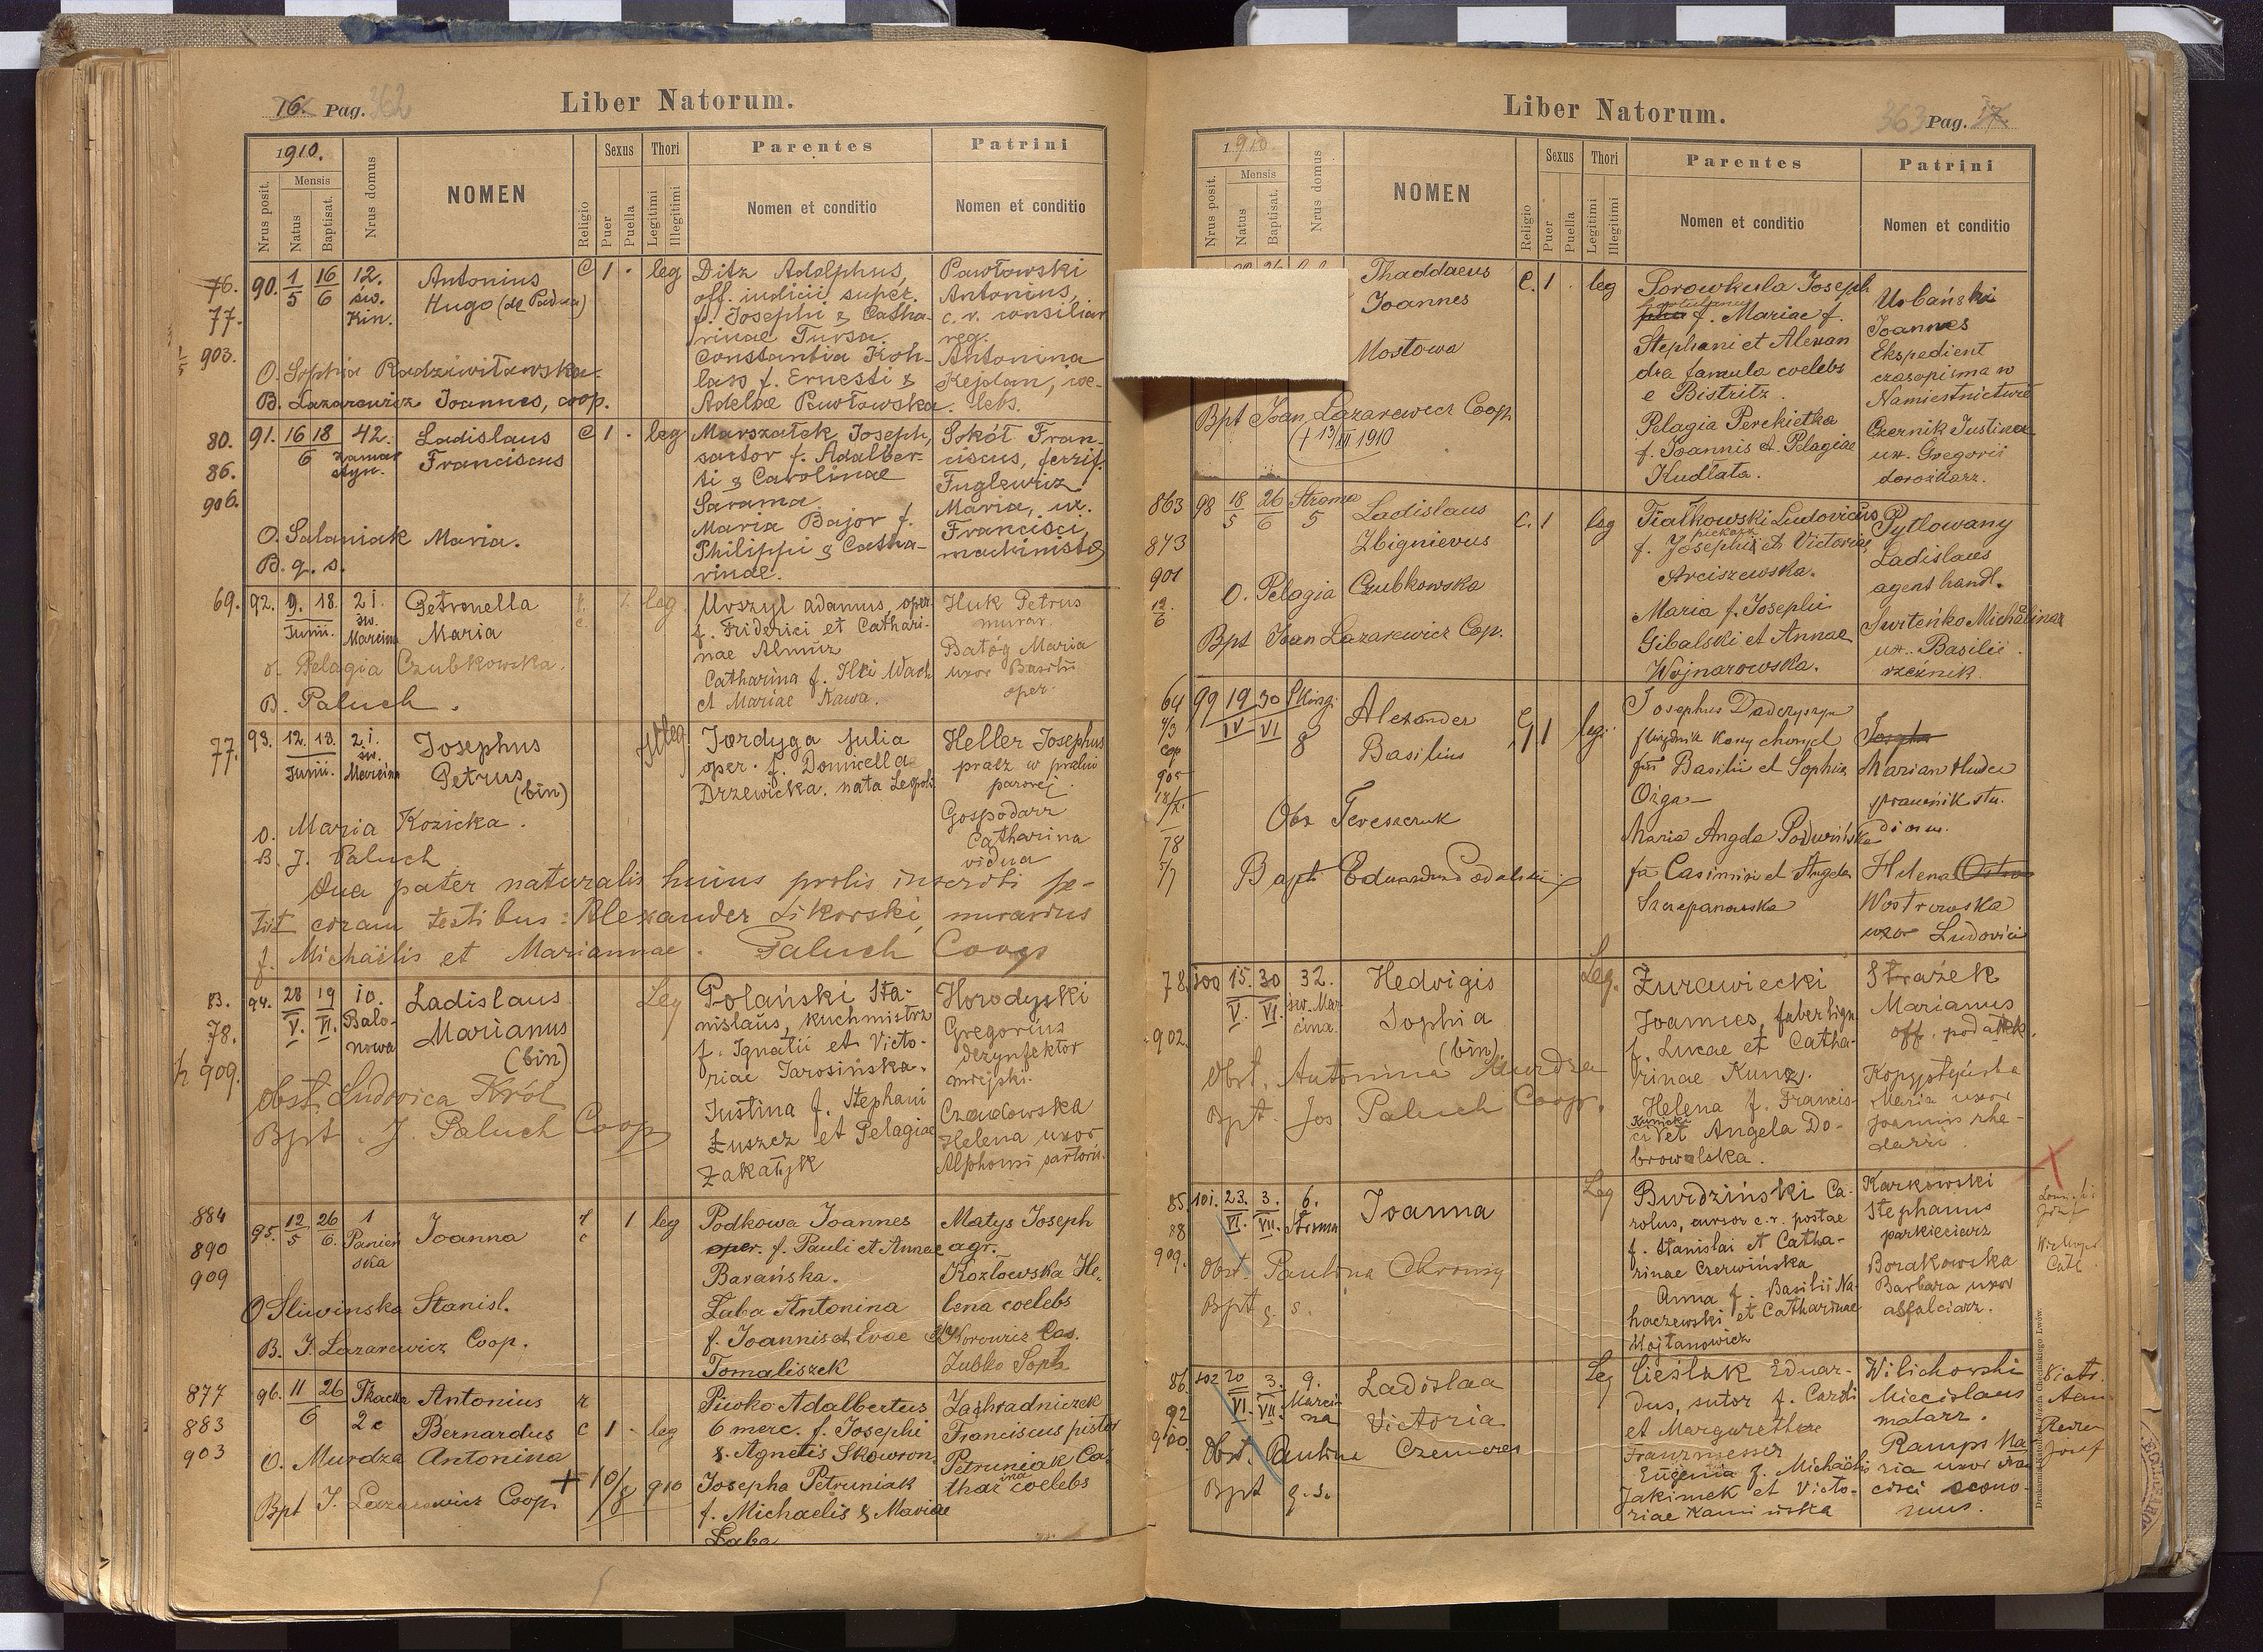 16. Pag. 362
Liber Natorum.
1910.
Nrus posit.
Mensis
Natus
Baptisat.
Nrus domus
NOMEN
Religio
Sexus
Puer
Puella
Thori
Legitimi
Illegitimi
Parentes
Nomen et conditio
Patrini
Nomen et conditio
76.
77.
903.
90. 1/5 16/6 12. św. Kin.
Antonius
Hugo (de Padua)
C 1 - leg
Ditz Adolphus,
off. iudicii super.
f. Josephi & Catha-
rinae Tursa.
Constantia Koh-
lass f. Ernesti &
Adelae Pawłowska.
Pawłowski
Antonius,
c. r. consiliar
reg.
Antonina
Kejdan, coe-
lebs.
O. Sophia Radziwiłowska.
B. Lazarewicz Joannes, coop.
80.
86.
906.
91. 16 18 6 42.
Ladislaus
Franciscus
C 1 - leg
Marszałek Joseph,
sartor f. Adalber-
ti & Carolinae
Sarama
Maria Bajor f.
Philippi & Catha-
rinae.
Sokół Fran-
ciscus, ferrif.
Fuglewicz
Maria, ux.
Francisci,
machinistae
O. Salaniak Maria.
B. q. s.
69.
92. 9. 18. Junii. 21. św. Marcina
Petronella
Maria
r. c. 1. leg.
Urszyl Adamus, oper.
f. Friderici et Cathari-
nae Almür
Catharina f. Ilki Wach
et Mariae Kawa.
Huk Petrus
murar.
Batóg Maria
uxor Basilii
oper.
o. Pelagia Czubkowska.
B. Paluch.
77.
93. 12. 13. Junii. 21. św. Marcina
Josephus
Petrus
(bin)
Illeg.
Jordyga Julia
oper. f. Domicella
Drzewicka. nata Leopoli
Heller Josephus
pracz w pralni
parowej.
Gospodarz
Catharina
vidua
o. Maria Kozicka.
B. J. Paluch
Qua pater naturalis huius prolis inscribi pe-
tiit coram testibus: Alexander Sikorski, murarius
f. Michaëlis et Mariannae. Paluch Coop
83.
78.
909.
94. 28/V. 19/VI. 10. Balo-
nowa
Ladislaus
Marianus
(bin)
Leg
Polański Sta-
nislaus, kuchmistrz
f. Ignatii et Victo-
riae Jarosińska.
Justina f. Stephani
Łuszcz et Pelagiae
Zakałyk
Horodyski
Gregorius
dezynfektor
miejski.
Czaudowska
Helena uxor
Alphonsi sartoris.
Obst. Ludovica Król
Bpt. J. Paluch Coop
884
890
909
95. 12/5 26/6. 1 Panień
ska
Joanna
r c 1 leg
Podkowa Joannes
oper. f. Pauli et Annae
Barańska.
Łaba Antonina
f. Joannis et Evae
Tomaliszek
Matys Joseph
agr.
Kozłowska He-
lena coelebs
Korowicz Cas.
Zubko Soph
O Sliwinska Stanisl.
B. J. Lazarewicz Coop.
877
883
903
96. 11 26 6 Tkacka
2c
Antonius
Bernardus
r c 1 - leg
Piwko Adalbertus
6 merc. f. Josephi
& Agnetis Skowron.
Josepha Petruniak
f. Michaelis & Mariae
Łaba
Zachradniczek
Franciscus pistor
Petruniak Ca-
tharina coelebs
O. Murdza Antonina
Bpt J. Lazarewicz Coop. + 10/8 910
Liber Natorum.
363 Pag. 17.
1910
Nrus posit.
Mensis
Natus
Baptisat.
Nrus domus
NOMEN
Religio
Sexus
Puer
Puella
Thori
Legitimi
Illegitimi
Parentes
Nomen et conditio
Patrini
Nomen et conditio
Thaddaeus
Joannes
Mostowa
C. 1 . leg
Sorowkula Joseph
f. Mariae f.
Stephani et Alexan
dra famula coelebs
e Bistritz.
Pelagia Perkietka
f. Joannis et Pelagiae
Kudlata.
Urbański
Joannes
Ekspedient
czasopisma w
Namiestnictwie
Czernik Justina
ux. Gregorii
dorożkarz.
Bpt Joan Lazarewicz Coop
(+ 13/III 1910
863
873
901
12/6
98 18/5 26/6 Stroma
5
Ladislaus
Zbignievus
C. 1 leg
Fiałkowski Ludovicus
piekarz
f. Josephi et Victoriae
Arciszewska.
Maria f. Josephi
Gibalski et Annae
Wojnarowska.
Pytlowany
Ladislaus
agent handl.
Surteńko Michalina
ux. Basilii
rzeźnik.
O. Pelagia Czubkowska
Bpt Joan Lazarewicz Cop.
64
99 19/IV 30/VI
8
Alexander
Basilius
1 leg.
Josephus Daderyszyn
fil Basilii et Sophia
Ożga
Maria Angda Podwińska
fa Casimiri et Angela
Szczepanowska
Marian Hudec
Helena
Wostrowska
uxor Ludovici
Obs Tereszczuk
Bapt Eduardus Podolski
78.
902.
100 15./V. 30/VI. 32.
św. Mar-
cina.
Hedvigis
Sophia
(bin).
Leg.
Żurawiecki
Joannes, faber lign
f. Lucae et Catha-
rinae Kunz.
Helena f. Francis-
Kunicki
ci et Angela Do-
browolska.
Strażek
Marianus
off. podatek.
Kopystyńska
Maria uxor
Joannis rhe-
darii.
Obst. Antonina Murdza
Bpt. Jos Paluch Coop.
85.
88
909.
101. 23./VI. 3./VII. 6.
Stroma
Joanna
Leg
Burdziński Ca-
rolus, cursor c. r. postae
f. Stanislai et Catha-
rinae Czerwińska
Anna f. Basilii Na-
haczewski et Catharinae
Wojtanowicz
Karkowski
Stephanus
parkieciarz
Borakowska
Barbara uxor
asfalciarz.
Obst. Paulina Chromy
Bpt q. s.
86.
92
900
102 20/VI. 3./VII. 9.
Marci-
na
Ladislaa
Victoria
Leg
Cieślak Eduar-
dus, sutor f. Caroli
et Margarethae
Franzmesser
Eugenia f. Michaëlis
Jakimek et Victo-
riae Kamińska
Wilichowski
Miecislaus
malarz.
Ramps Ma
ria uxor Fran
cisci econo-
mus.
Obst. Paulina Czemeres
Bpt q. s.